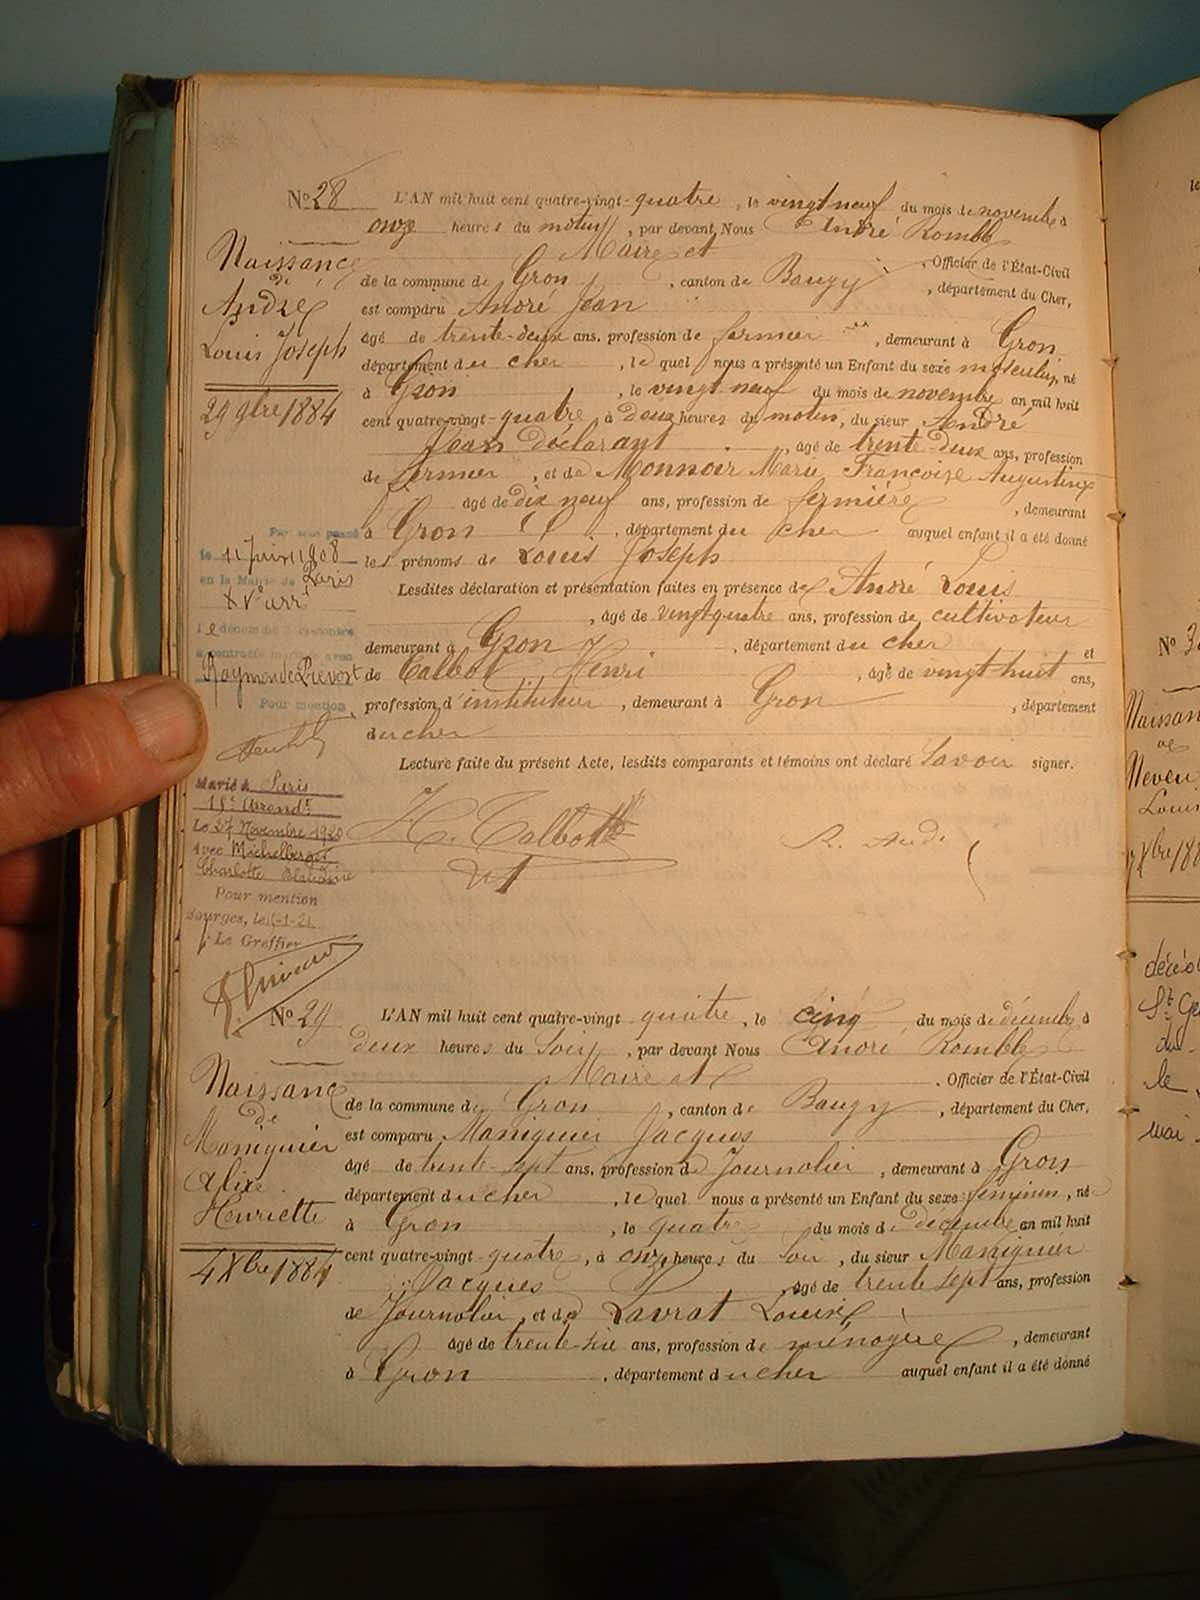 No 28
L'AN mil huit cent quatre-vingt-quatre, le vingt neuf du mois de novembre à
onze heures du matin, par devant Nous André Romble
Maire et
, Officier de l'État-Civil
de la commune de Gron, canton de Baugy, département du Cher,
est comparu André Jean
âgé de trente-deux ans, profession de fermier, demeurant à Gron
département du cher, lequel nous a présenté un Enfant du sexe masculin, né
à Gron, le vingt neuf du mois de novembre an mil huit
cent quatre-vingt-quatre, à deux heures du matin, du sieur André
Jean déclarant, âgé de trente-deux ans, profession
de fermier, et de Monnoir Marie Françoise Augustine
âgé de dix neuf ans, profession de fermière, demeurant
à Gron, département du cher auquel enfant il a été donné
les prénoms de Louis Joseph
Lesdites déclaration et présentation faites en présence de André Louis
, âgé de vingt-quatre ans, profession de cultivateur
demeurant à Gron, département du cher et
de Talbot Henri, âgé de vingt huit ans,
profession d'instituteur, demeurant à Gron, département
du cher
Lecture faite du présent Acte, lesdits comparants et témoins ont déclaré savoir signer.
H. Talbot
Naissance
de
André
Louis Joseph
29 9bre 1884
Par acte passé
le 11 Juin 1908
en la Mairie de Paris
XVe arrt
le dénommé ci-contre
a contracté mariage avec
Raymonde Prevost
Pour mention
Marié à Paris
18e Arrondt
Le 27 Novembre 1920
avec Michelberger
Charlotte Blandine
Pour mention
Bourges, le
Le Greffier
No 29
L'AN mil huit cent quatre-vingt quatre, le cinq du mois de décembre à
deux heures du soir, par devant Nous André Romble
Maire et
, Officier de l'État-Civil
de la commune de Gron, canton de Baugy, département du Cher,
est comparu Maniguier Jacques
âgé de trente-sept ans, profession de Journalier, demeurant à Gron
département du cher, lequel nous a présenté un Enfant du sexe féminin, né
à Gron, le quatre du mois de décembre an mil huit
cent quatre-vingt-quatre, à onze heures du soir, du sieur Maniguier
Jacques, âgé de trente sept ans, profession
de Journalier, et de Lavrat Louise
âgé de trente-six ans, profession de ménagère, demeurant
à Gron, département du cher auquel enfant il a été donné
Naissance
de
Maniguier
Alix
Henriette
4 Xbre 1884
No 3
Naissan
de
Neveu
Louis
Xbre 188
décéd
St Ge
du
le
mai